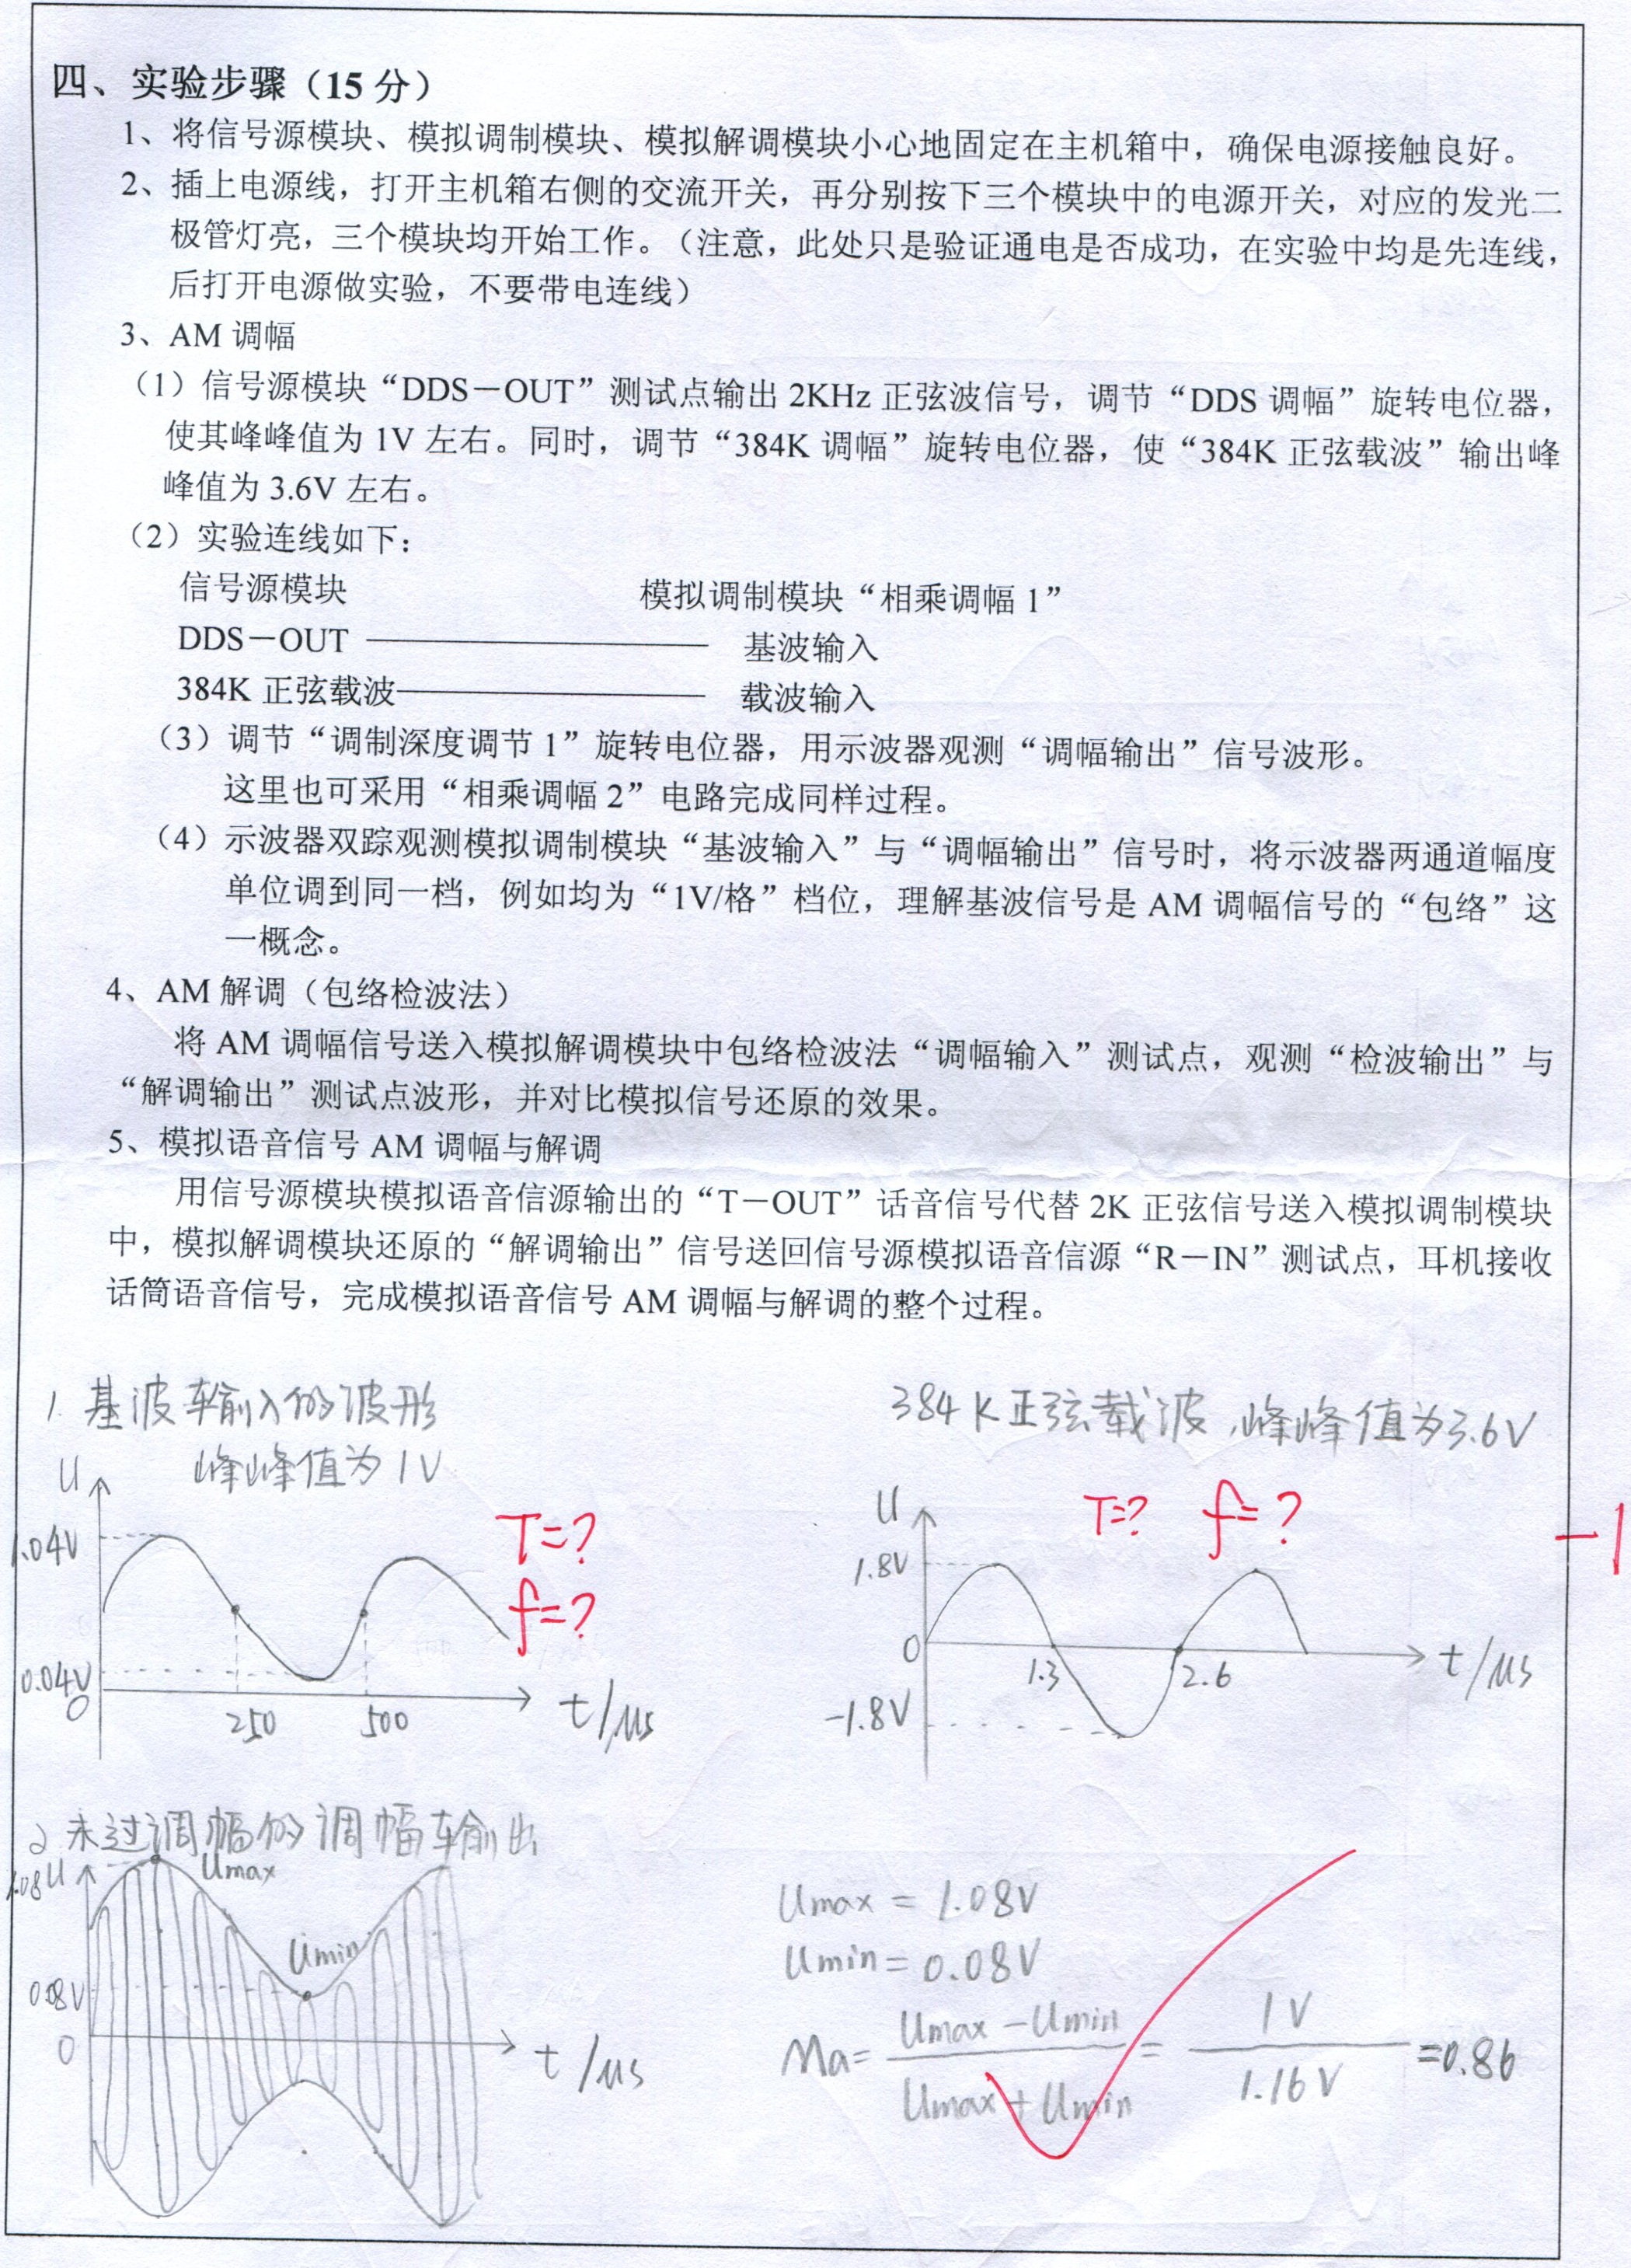 四、实验步骤（15 分）
1、将信号源模块、模拟调制模块、模拟解调模块小心地固定在主机箱中，确保电源接触良好。
2、插上电源线，打开主机箱右侧的交流开关，再分别按下三个模块中的电源开关，对应的发光二
极管灯亮，三个模块均开始工作。（注意，此处只是验证通电是否成功，在实验中均是先连线，
后打开电源做实验，不要带电连线）
3、AM 调幅
（1）信号源模块“DDS－OUT”测试点输出 2KHz 正弦波信号，调节“DDS 调幅”旋转电位器，
使其峰峰值为 1V 左右。同时，调节“384K 调幅”旋转电位器，使“384K 正弦载波”输出峰
峰值为 3.6V 左右。
（2）实验连线如下：
信号源模块 模拟调制模块“相乘调幅 1”
DDS－OUT ——————————— 基波输入
384K 正弦载波—————————— 载波输入
（3）调节“调制深度调节 1”旋转电位器，用示波器观测“调幅输出”信号波形。
这里也可采用“相乘调幅 2”电路完成同样过程。
（4）示波器双踪观测模拟调制模块“基波输入”与“调幅输出”信号时，将示波器两通道幅度
单位调到同一档，例如均为“1V/格”档位，理解基波信号是 AM 调幅信号的“包络”这
一概念。
4、AM 解调（包络检波法）
将 AM 调幅信号送入模拟解调模块中包络检波法“调幅输入”测试点，观测“检波输出”与
“解调输出”测试点波形，并对比模拟信号还原的效果。
5、模拟语音信号 AM 调幅与解调
用信号源模块模拟语音信源输出的“T－OUT”话音信号代替 2K 正弦信号送入模拟调制模块
中，模拟解调模块还原的“解调输出”信号送回信号源模拟语音信源“R－IN”测试点，耳机接收
话筒语音信号，完成模拟语音信号 AM 调幅与解调的整个过程。
1. 基波输入的波形
峰峰值为 1V
U
1.04V
0.04V
0
250 500 t/μs
T=?
f=?
384K正弦载波,峰峰值为3.6V
U
T=? f=?
-1
1.8V
0
-1.8V
1.3 2.6 t/μs
2 未过调幅的调幅输出
1.08 U
Umax
Umin
0.08V
0
t/μs
Umax = 1.08V
Umin = 0.08V
Ma= (Umax - Umin)/(Umax + Umin) = 1V/1.16V =0.86